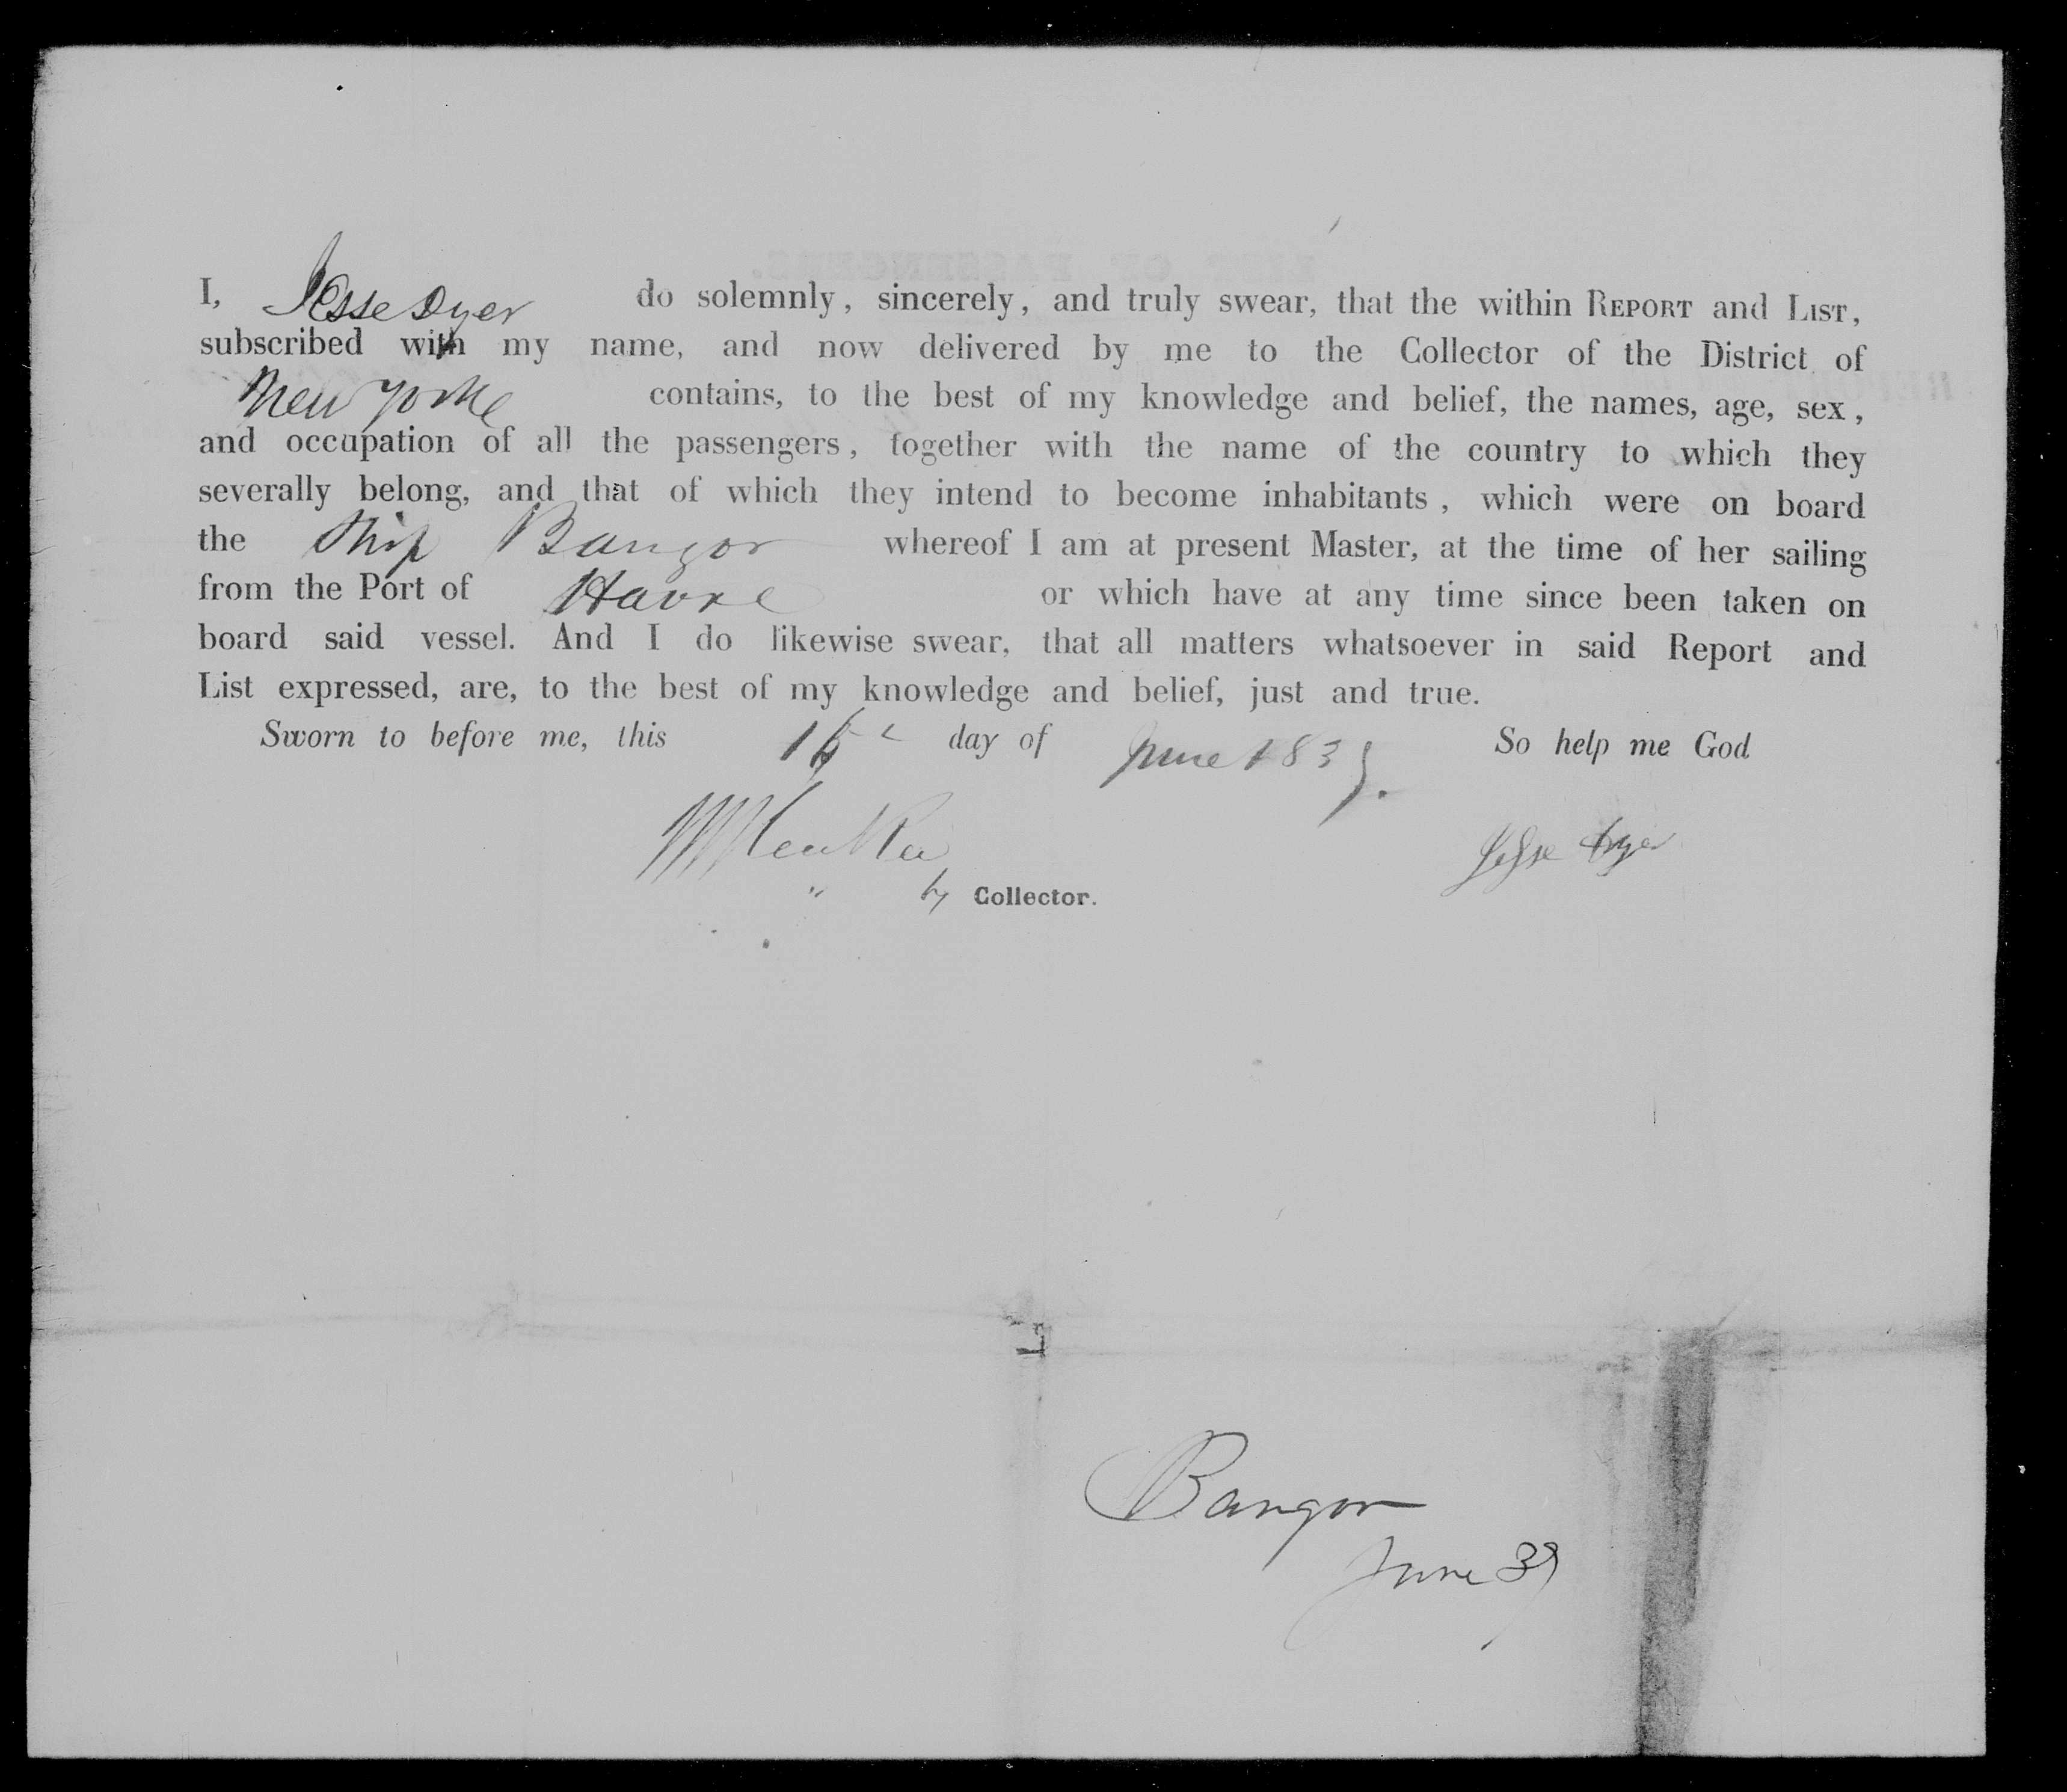 I, Jesse Dyer do solemnly, sincerely, and truly swear, that the within REPORT and LIST,
subscribed with my name, and now delivered by me to the Collector of the District of
New Yorke contains, to the best of my knowledge and belief, the names, age, sex,
and occupation of all the passengers, together with the name of the country to which they
severally belong, and that of which they intend to become inhabitants, which were on board
the Ship Bangor whereof I am at present Master, at the time of her sailing
from the Port of Havre or which have at any time since been taken on
board said vessel. And I do likewise swear, that all matters whatsoever in said Report and
List expressed, are, to the best of my knowledge and belief, just and true.
Sworn to before me, this day of June 1839. So help me God
Jesse Dyer
Collector.
Bangor
June 39